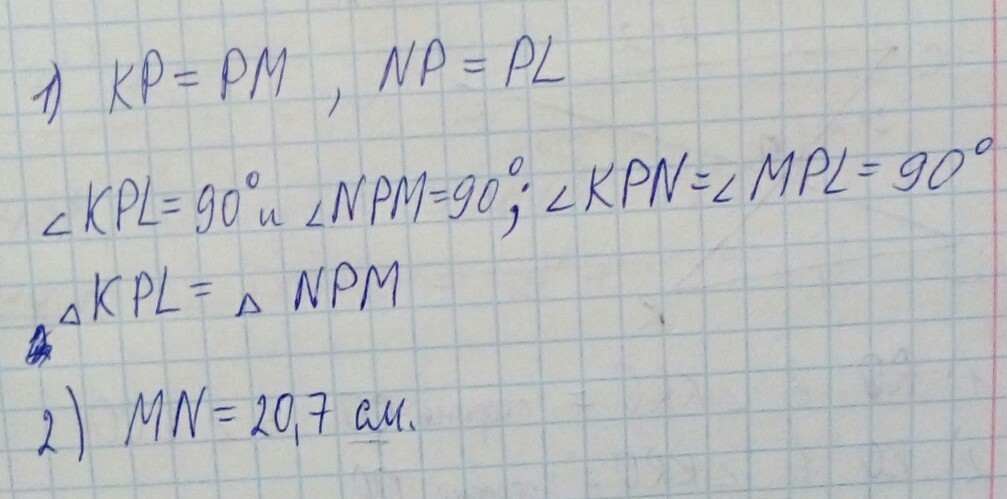 1) KP = PM , NP = PL
∠KPL = 90° и ∠NPM = 90°; ∠KPN = ∠MPL = 90°
△KPL = △ NPM
2) MN = 20,7 см.